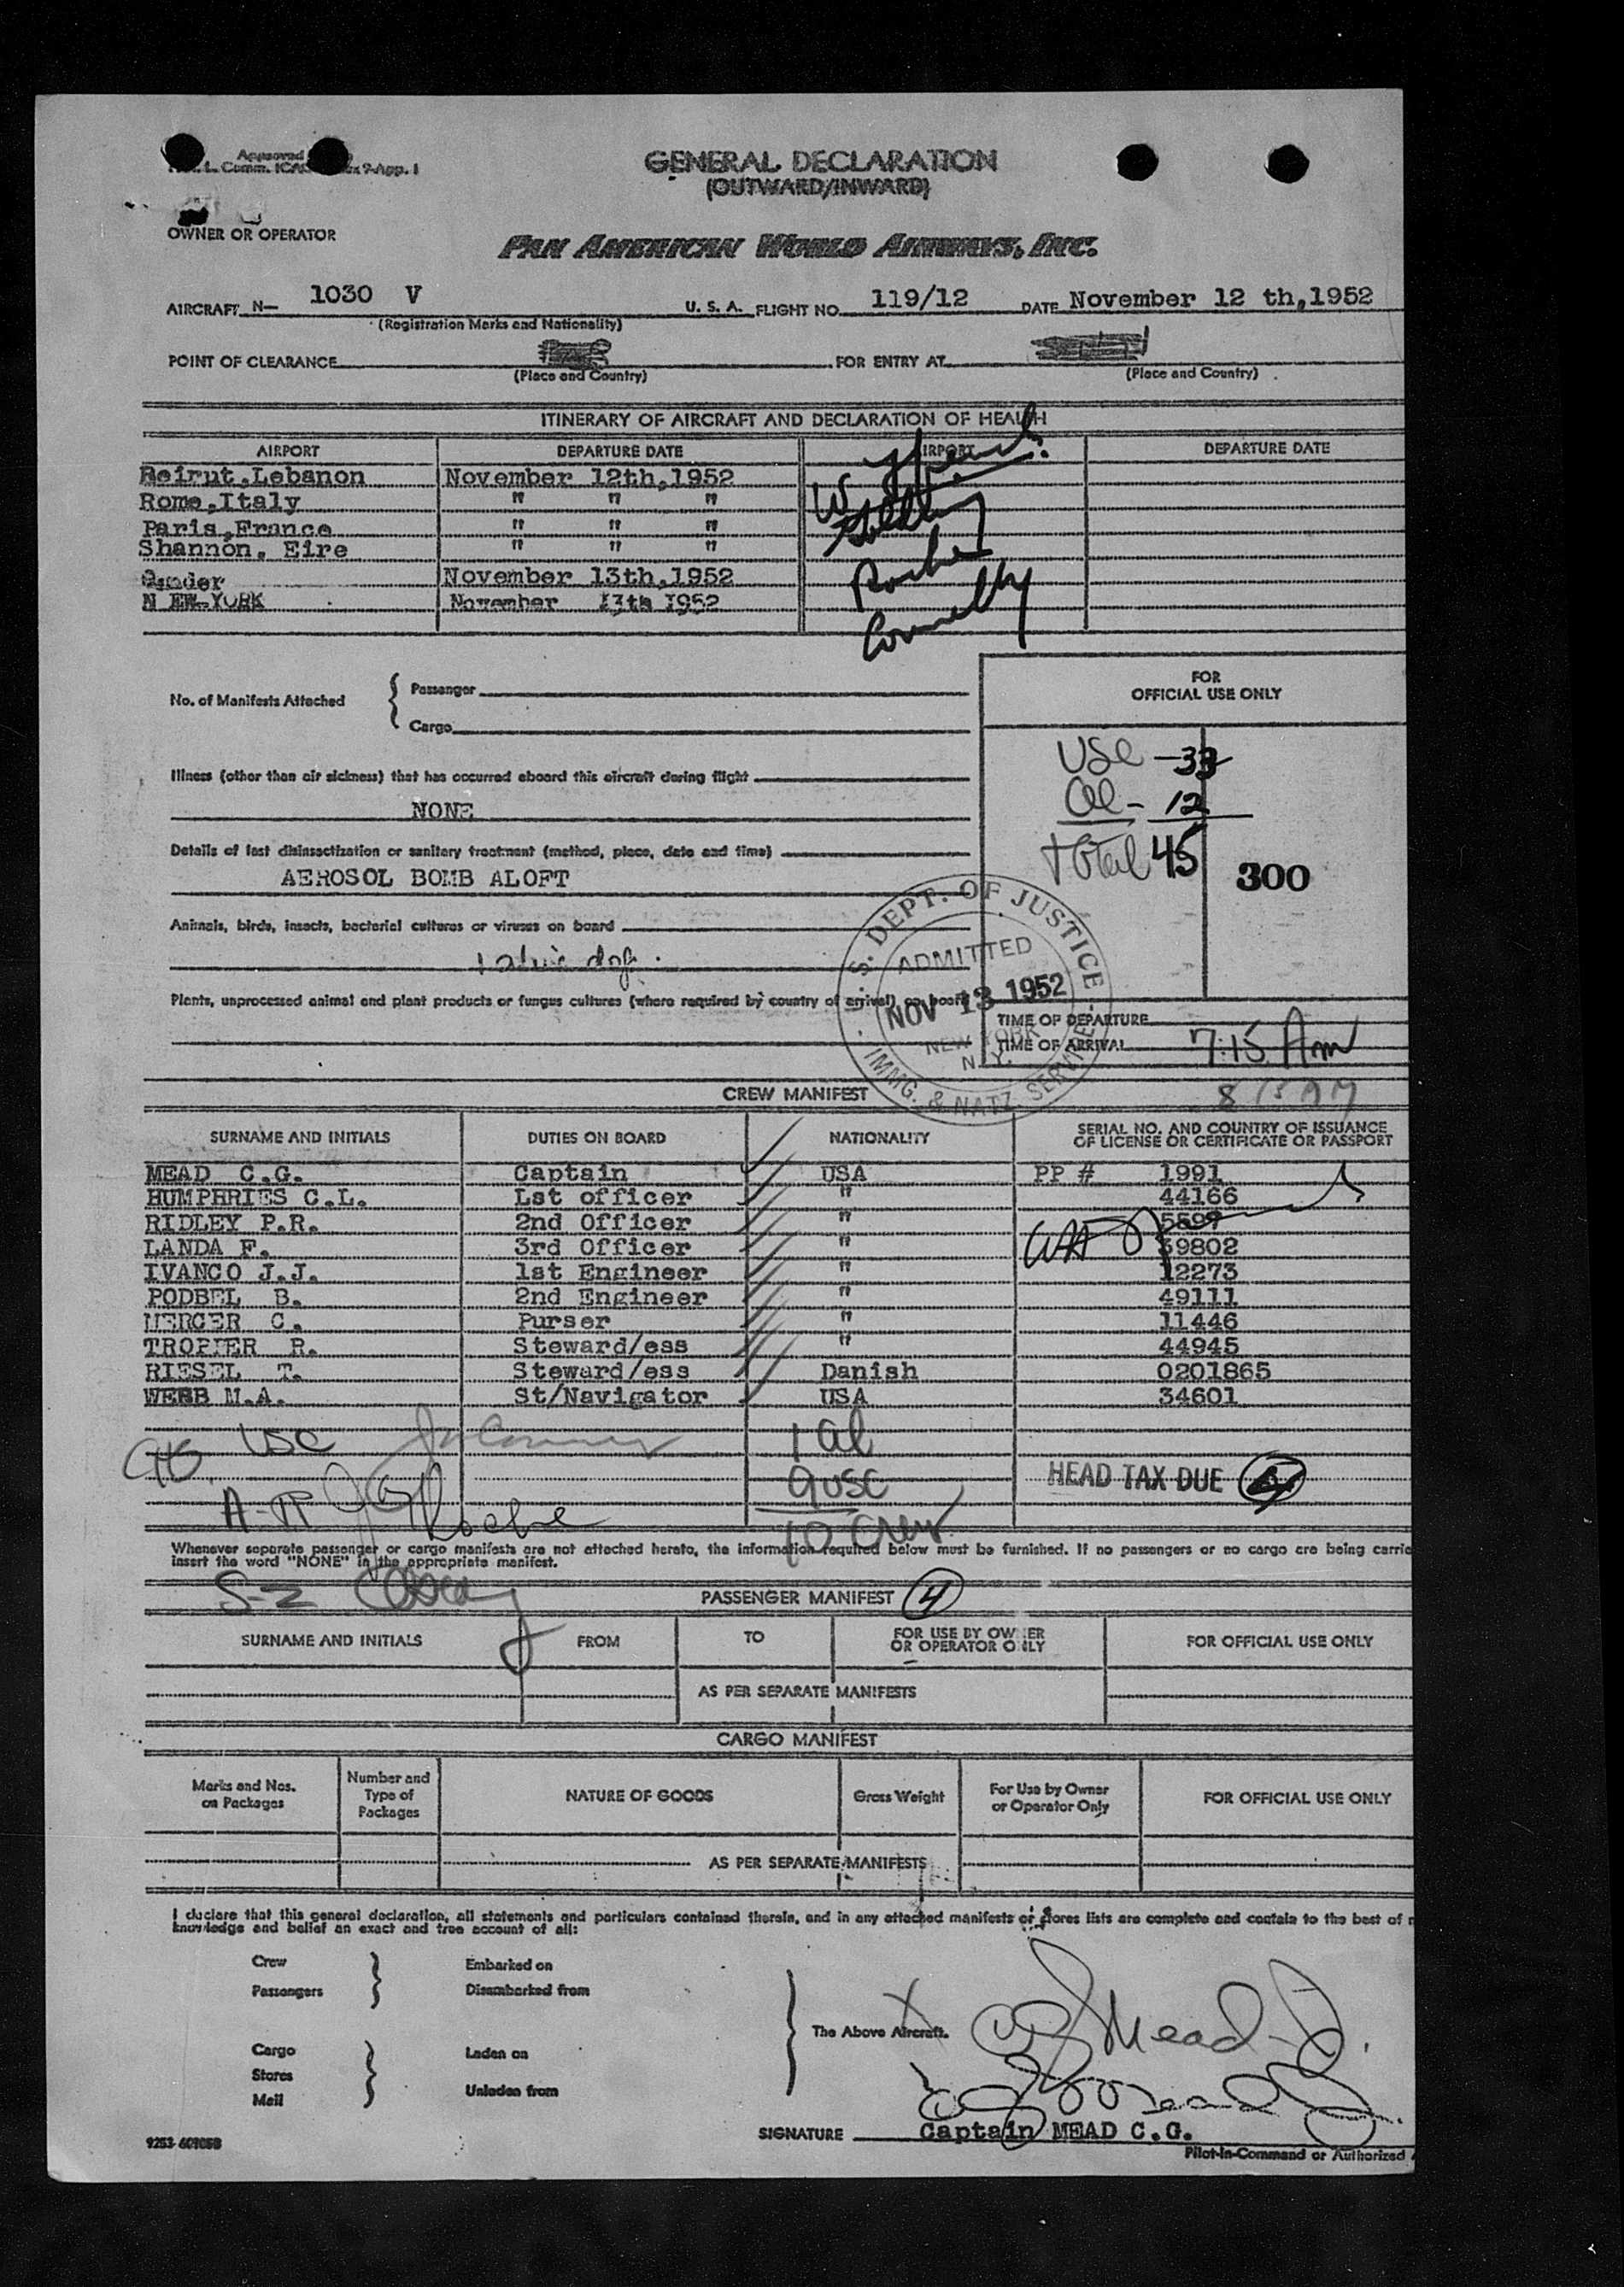 Approved
L. Comm. ICAO 9-App. 1
GENERAL DECLARATION
(OUTWARD/INWARD)
OWNER OR OPERATOR
PAN AMERICAN WORLD AIRWAYS, INC.
AIRCRAFT N— 1030 V U. S. A. FLIGHT NO. 119/12 DATE November 12 th,1952
(Registration Marks and Nationality)
POINT OF CLEARANCE FOR ENTRY AT
(Place and Country) (Place and Country)
ITINERARY OF AIRCRAFT AND DECLARATION OF HEALTH
AIRPORT DEPARTURE DATE AIRPORT DEPARTURE DATE
Beirut,Lebanon November 12th,1952
Rome,Italy " " "
Paris,France " " "
Shannon, Eire " " "
Gander November 13th,1952
N EW-YORK November 13th 1952
Roche
Connelly
FOR
OFFICIAL USE ONLY
No. of Manifests Attached { Passenger
Cargo
USC - 33
Al - 12
Total 45
300
Illness (other than air sickness) that has occurred aboard this aircraft during flight
NONE
Details of last disinsectization or sanitary treatment (method, place, date and time)
AEROSOL BOMB ALOFT
Animals, birds, insects, bacterial cultures or viruses on board
1 alive dog.
Plants, unprocessed animal and plant products or fungus cultures (where required by country of arrival) on board
U. S. DEPT. OF JUSTICE
ADMITTED
NOV 13 1952
NEW YORK
N. Y.
IMMG. & NATZ. SERVICE
TIME OF DEPARTURE
TIME OF ARRIVAL 7:15 Am
8 15 AM
CREW MANIFEST
SURNAME AND INITIALS DUTIES ON BOARD NATIONALITY SERIAL NO. AND COUNTRY OF ISSUANCE
OF LICENSE OR CERTIFICATE OR PASSPORT
MEAD C.G. Captain USA PP # 1991
HUMPHRIES C.L. Lst officer " 44166
RIDLEY P.R. 2nd Officer " 5597
LANDA F. 3rd Officer " 39802
IVANCO J.J. 1st Engineer " 12273
PODBEL B. 2nd Engineer " 49111
MERCER C. Purser " 11446
TROPIER R. Steward/ess " 44945
RIESEL T. Steward/ess Danish 0201865
WEBB M.A. St/Navigator USA 34601
USC
1 al
9 USC
10 Crew
HEAD TAX DUE
A-R Roche
Whenever separate passenger or cargo manifests are not attached hereto, the information required below must be furnished. If no passengers or no cargo are being carrie
insert the word "NONE" in the appropriate manifest.
S-Z
PASSENGER MANIFEST 4
SURNAME AND INITIALS FROM TO FOR USE BY OWNER
OR OPERATOR ONLY FOR OFFICIAL USE ONLY
AS PER SEPARATE MANIFESTS
CARGO MANIFEST
Marks and Nos.
on Packages Number and
Type of
Packages NATURE OF GOODS Gross Weight For Use by Owner
or Operator Only FOR OFFICIAL USE ONLY
AS PER SEPARATE MANIFESTS
I declare that this general declaration, all statements and particulars contained therein, and in any attached manifests or stores lists are complete and contain to the best of m
knowledge and belief an exact and true account of all:
Crew Embarked on
Passengers Disembarked from
The Above Aircraft.
Cargo Laden on
Stores
Mail Unladen from
X CG Mead Jr.
SIGNATURE Captain MEAD C.G.
Pilot-in-Command or Authorized